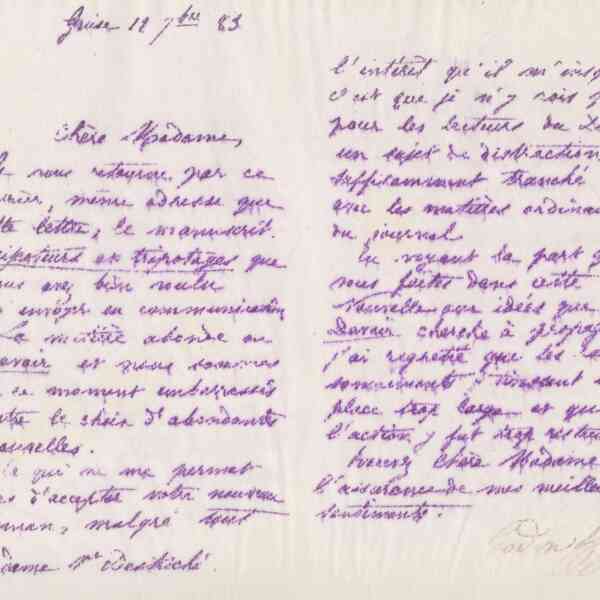 Guise 12 7bre 83
Chère Madame,
vous retourne par ce
même adresse que
lettre, le manuscrit.
en tripotages que
avez bien voulu
envoyer en communication
La matière abonde au
evoir et nous sommes
ce moment embarrassés
le choix d'abondantes
ouvelles.
qui ne me permet
d'accepter votre nouveau
man, malgré tout
l'intérêt qu'il m'ins
c'est que je n'y vois
pour les lecteurs du
un sujet de distraction
suffisamment tranché
avec les matières ordinai
du journal
En voyant la part
vous faites dans cette
nouvelle aux idées que
Devoir cherche à propag
j'ai regretté que les
tinssent
place trop large et qu
l'action y fut trop restr
Veuillez Chère Madame
l'assurance de mes meille
sentiments.
Godin